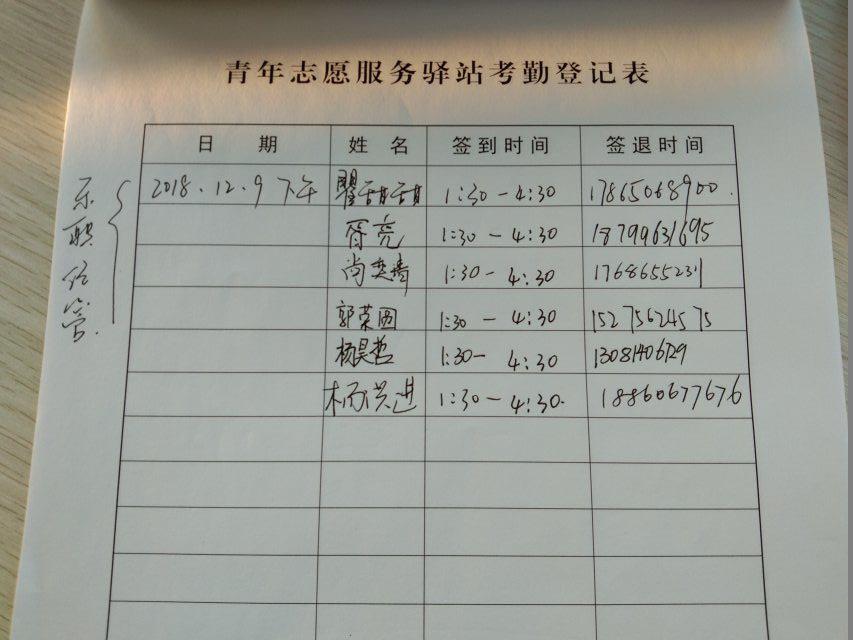 青年志愿服务驿站考勤登记表
日 期 姓 名 签到时间 签退时间
2018.12.9 下午 翟甜甜 1:30-4:30 17865068900.
胥亮 1:30-4:30 18799631695
尚 1:30-4:30 17686552231
郭荣圆 1:30-4:30 15275624575
杨昊哲 1:30-4:30
杨洪进 1:30-4:30. 18860677676
信管.